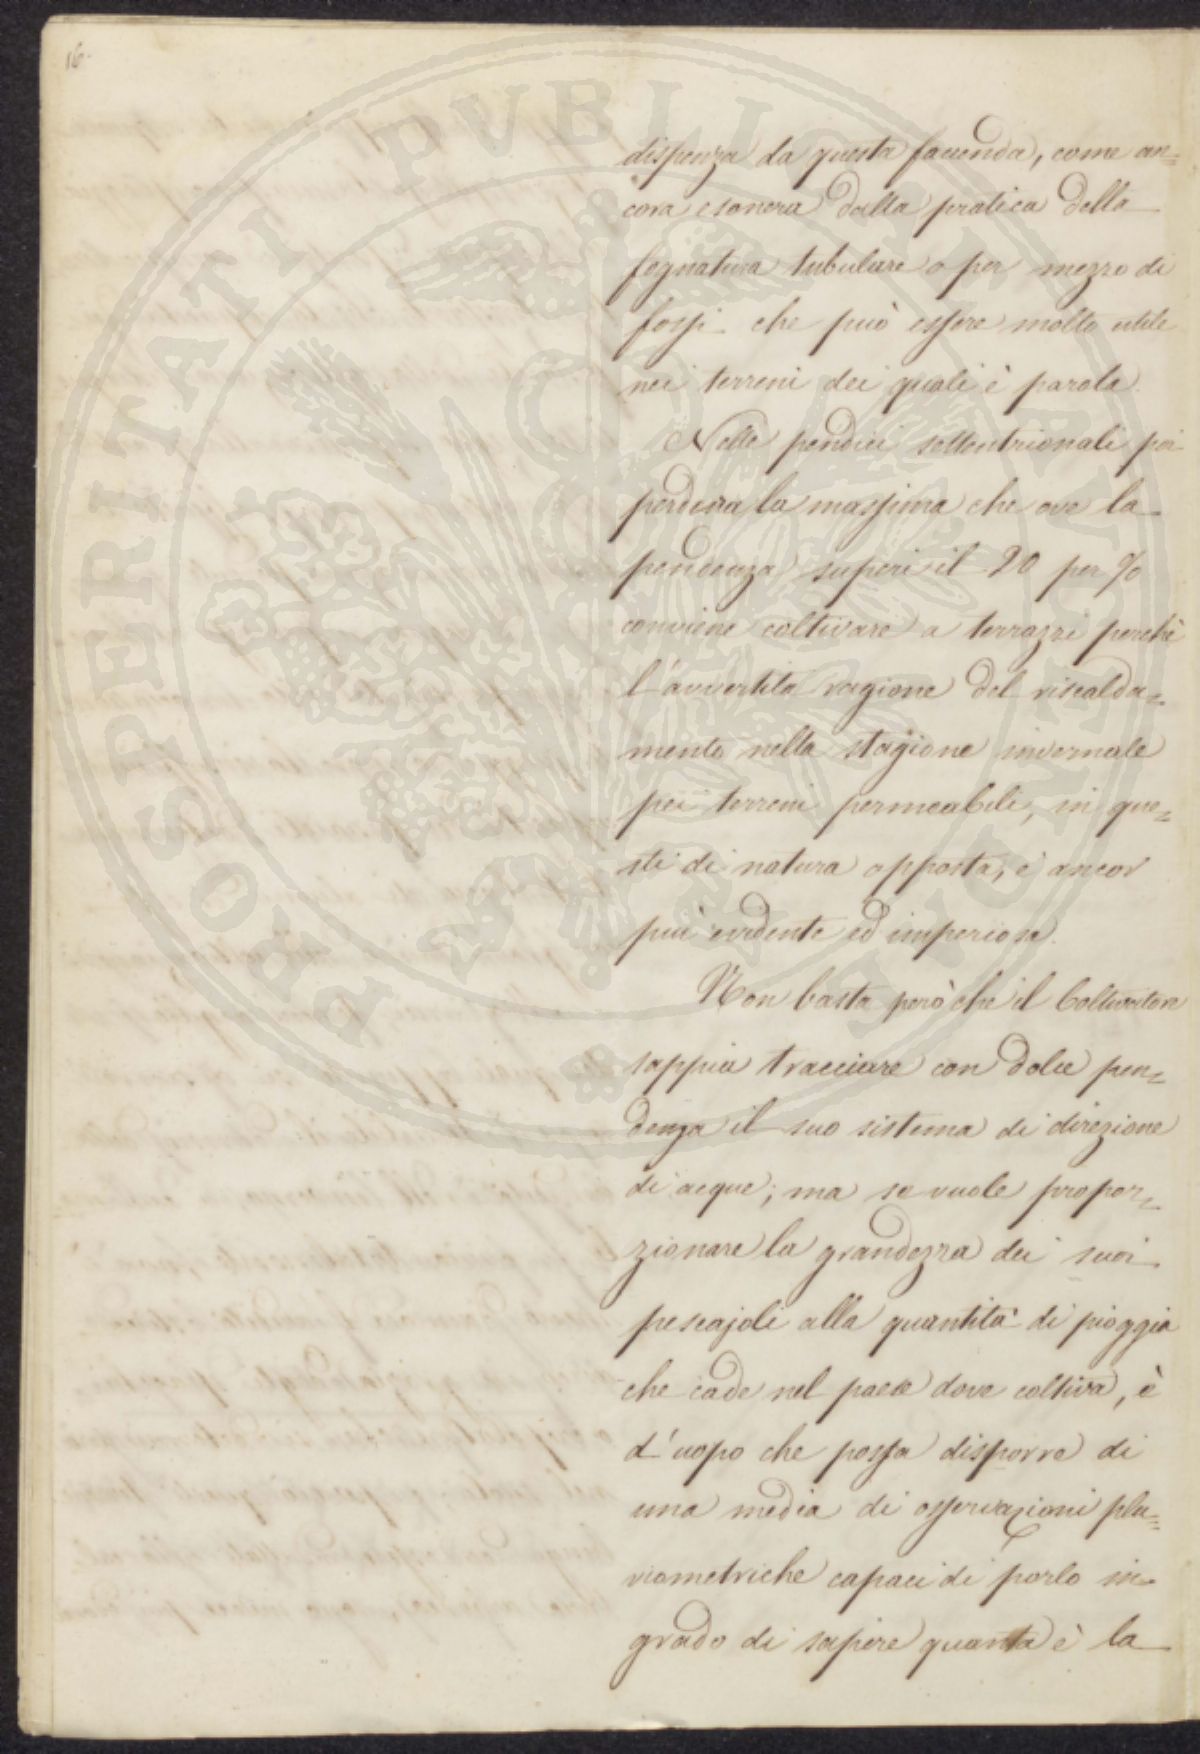 16.
dispenza da questa facenda, come an=
cora esonera dalla pratica della
fognatura tubulare o per mezzo di
fossi che può essere molto utile
nei terreni dei quali è parola.
Nelle pendici settentrionali poi
perdura la massima che ove la
pendenza superi il 20 per %
conviene coltivare a terrazzi perchè
l'avvertita ragione del riscalda=
mento nella stagione invernale
pei terreni permeabili, in que=
sti di natura opposta, è ancor
più evidente ed imperiosa.
Non basta però che il Coltivatore
sappia tracciare con dolce pen=
denza il suo sistema di direzione
di acque; ma se vuole propor=
zionare la grandezza dei suoi
pescajoli alla quantità di pioggia
che cade nel paese dove coltiva, è
d'uopo che possa disporre di
una media di osservazioni plu=
viometriche capaci di porlo in
grado di sapere quanta è la
PROSPERITATI PVBLICAE AVGENDAE